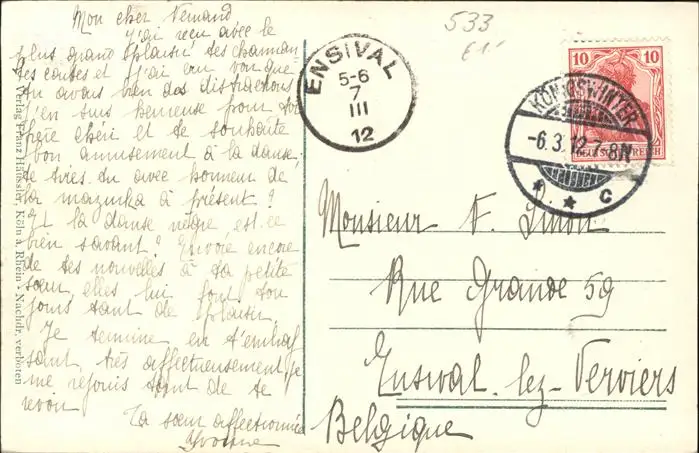 Mon cher Fernand
J'ai reçu avec le
plus grand plaisir tes charman-
tes cartes et j'ai cru voir que
tu avais bien des distractions
J'en suis heureuse pour toi
frère chéri et te souhaite
bon amusement à la danse,
te tires-tu avec honneur de
la mazurka à présent ?
Et la danse nègre, est-ce
bien savant ? Envoie encore
de tes nouvelles à ta petite
sœur, elles lui font tou
jours tant de plaisir.
Je termine en t'embras
sant très affectueusement je
me réjouis tant de te
revoir
Ta sœur affectionnée
Yvonne
Verlag Franz Häussler, Köln a. Rhein · Nachdr. verboten
533
ENSIVAL
5-6
7
III
12
10 10
DEUTSCHES REICH
KÖNIGSWINTER
-6.3.12.7-8N
* * c
Monsieur F. Simon
Rue Grande 59
Ensival-lez-Verviers
Belgique